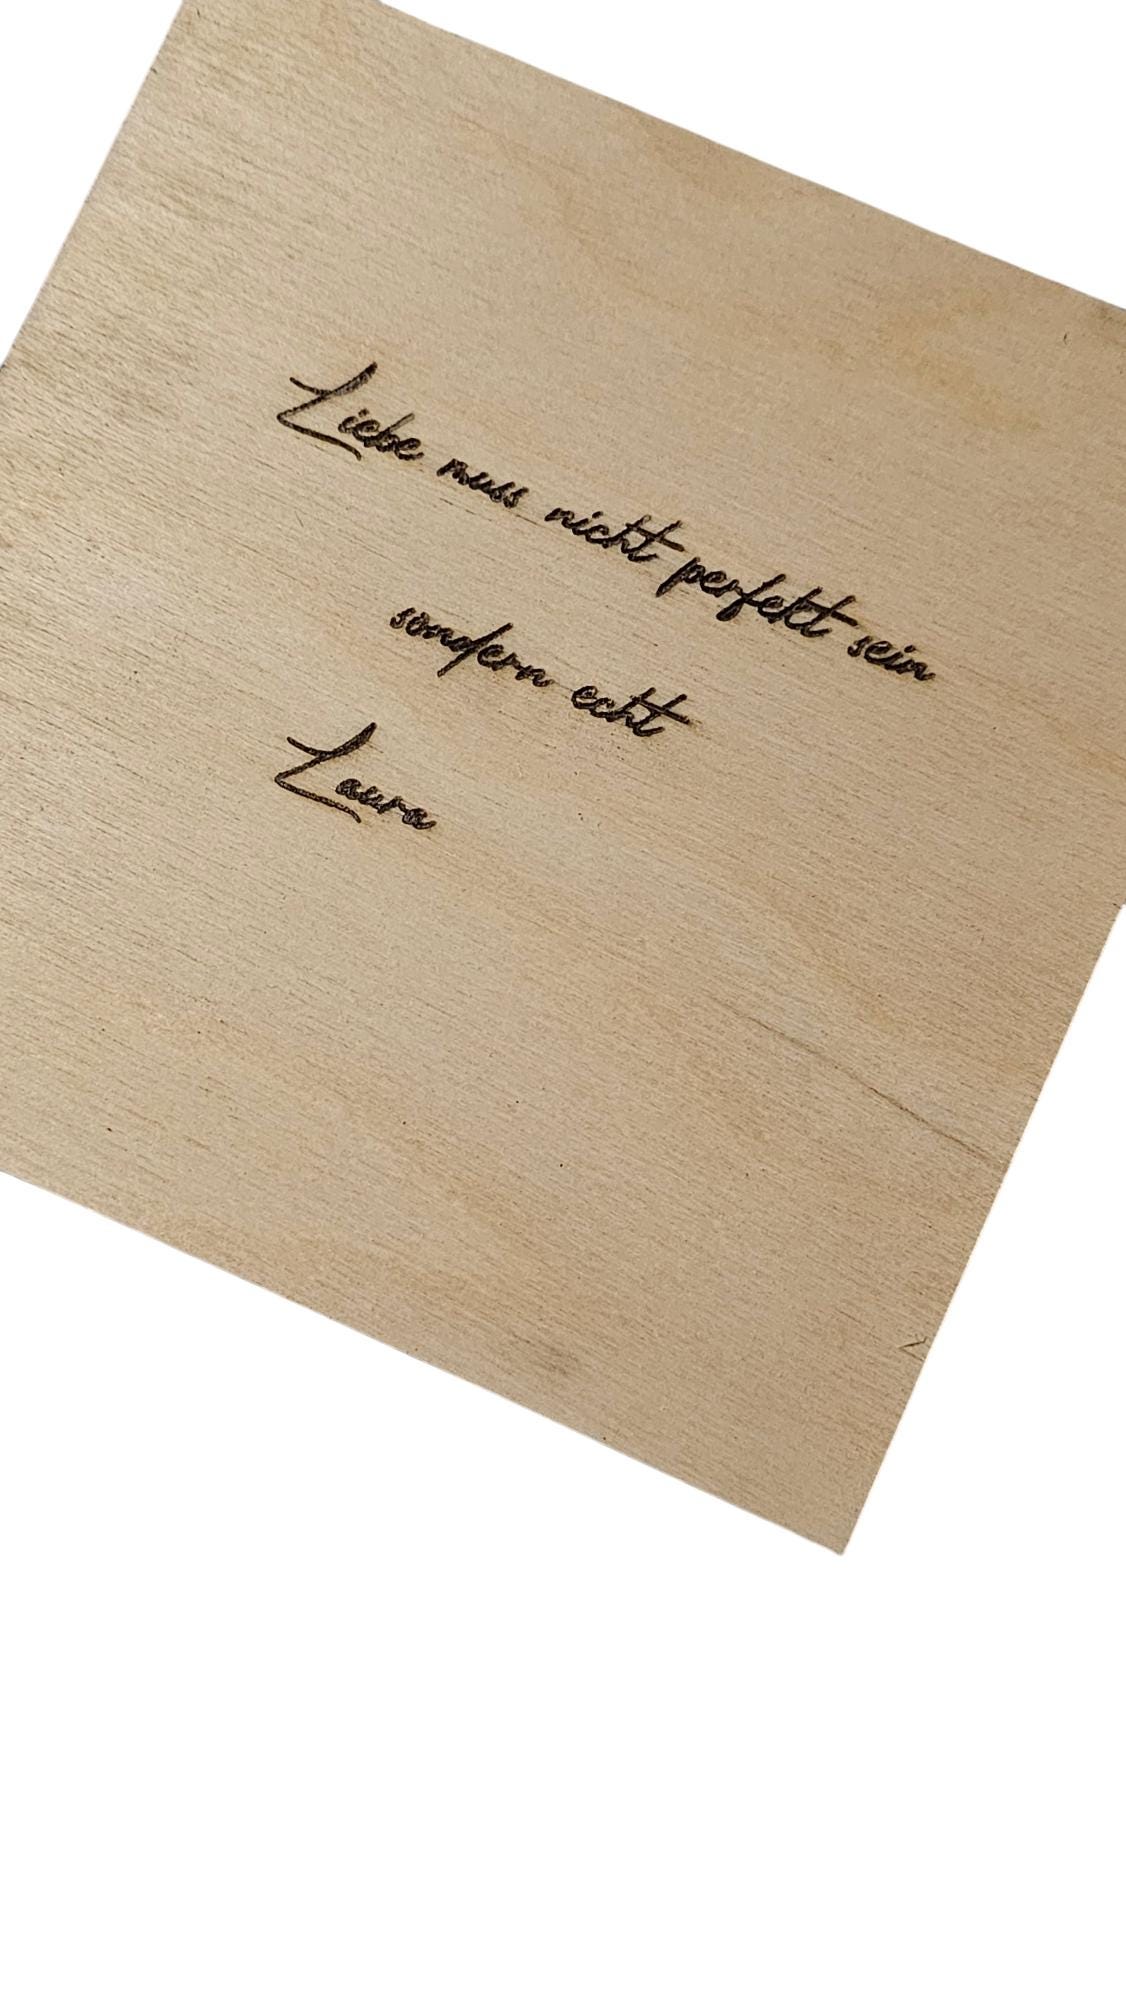 Liebe muss nicht perfekt sein
sondern echt
Laura